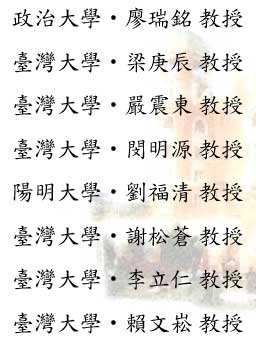 政治大學・廖瑞銘 教授
臺灣大學・梁庚辰 教授
臺灣大學・嚴震東 教授
臺灣大學・閔明源 教授
陽明大學・劉福清 教授
臺灣大學・謝松蒼 教授
臺灣大學・李立仁 教授
臺灣大學・賴文崧 教授